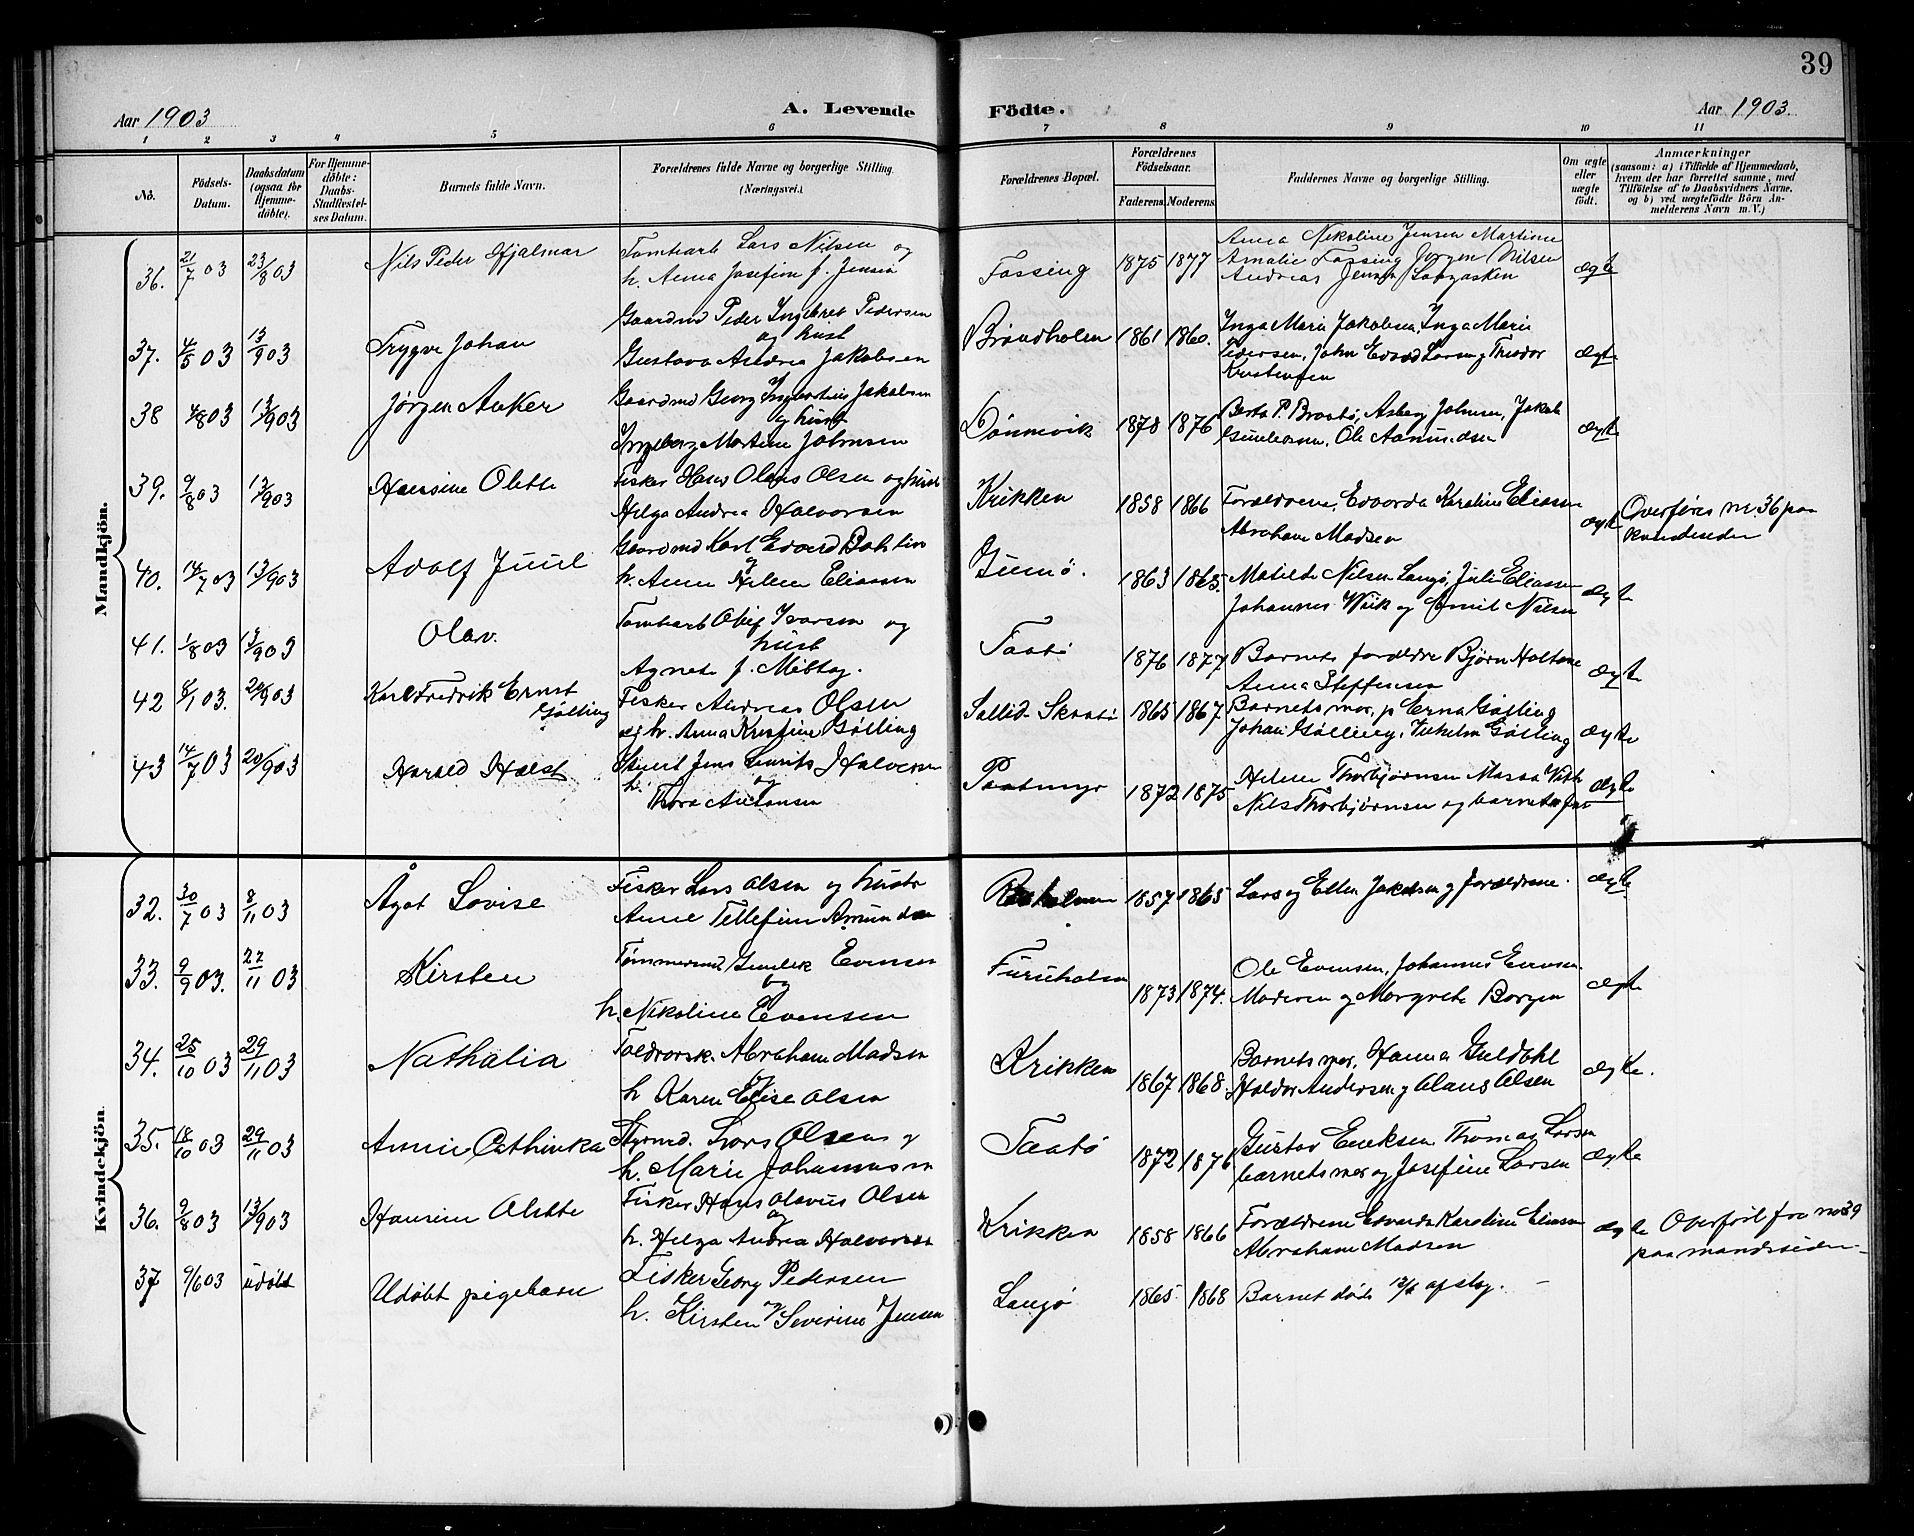 39
Aar 1903
A. Levende
Födte.
Aar 1903.
1 2 3 4 5 6 7 8 9 10 11
No.
Födsels-Datum.
Daabsdatum (ogsaa for Hjemme-döbte).
For Hjemme-döbte: Daabs-Stadfæstel-ses Datum.
Barnets fulde Navn.
Forældrenes fulde Navne og borgerlige Stilling. (Næringsvei.)
Forældrenes Bopæl.
Forældrenes Födselsaar.
Faderens. Moderens.
Faddernes Navne og borgerlige Stilling.
Om ægte eller uægte födt.
Anmærkninger
(saasom: a) i Tilfælde af Hjemmedaab, hvem der har forrettet samme, med Tilföielse af to Daabsvidners Navne. og b) ved uægtefödte Börn An-melderens Navn m. V.)
Mandkjön.
36. 21/7 03 23/8 03 Nils Peder Hjalmar
Tomtearb Lars Nilsen og
h. Anna Josefine f. Jensen
Fossing 1875 1877
Anna Nikoline Jensen Martine
Amalie Fossing Jørgen Nilsen
Andreas Jensen
ægte
37. 4/5 03 13/9 03 Trygve Johan
Gaardmd Peder Ingebret Pedersen
og hust
Gustava Andrea Jakobsen
Brøndholmen 1861 1860.
Inga Marie Jakobsen, Inga Marie
Pedersen, John Edvard Larsen og Theodor
Kristensen
ægte
38 4/8 03 13/9 03 Jørgen Anker
Gaardmd Georg Ingvartius Jakobsen
og hust
Ingeborg Martine Johnsen
Dønnevik 1878 1876
Berta P. Braatø, Asberg Johnsen, Jakob
Gundersen, Ole Aamundsen
ægte
39. 9/8 03 13/9 03 Hansine Olette
Fisker Hans Olaus Olsen og hust
Helga Andrea Halvorsen
Krikken 1858 1866
Forældrene, Edvarda Karoline Eliassen
Abraham Madsen
ægte
Overføres no. 36 paa
kvindesiden
40. 14/7 03 13/9 03 Adolf Juul
Gaardmd Karl Edvard Dahlin
og
h. Anna Helene Eliassen
Gumø. 1863 1865.
Matilde Nilsen Langø, Julie Eliassen
Johannes Wiik og Emil Nilsen
ægte
41. 1/8 03 13/9 03 Olav.
Tomtearb Oluf Ivarsen og
hust
Agnete f. Møltag.
Taatø 1876 1877
Barnets forældre Bjørn Holtane
Anna Steffensen
ægte
42 8/1 03. 20/9 03 Karl Fredrik Ernst
Gølling
Fisker Andreas Olsen
og h. Anna Kristine Gølling
Saltid-Skaatø 1865 1867
Barnets mor, p Erna Gølling
Johan Gølling, Vilhelm Gølling
ægte
43 14/7 03 20/9 03 Harald Holst
Skuert Jens Laurits Halvorsen
og
h. Thora Antonsen
Paatmyr 1872 1875
Helene Thorbjørnsen
Nils Thorbjørnsen og barnets far
ægte
Kvindekjön.
32. 30/7 03 8/11 03 Ågot Lovise
Fisker Lars Olsen og hustr
Anne Tellefine Amundsen
1857 1865
Lars og Ellen Jakobsen og forældrene.
ægte
33. 9/9 03. 22/11 03 Kirsten
Tømmermd Gunlek Evensen
og
h. Nikoline Evensen
Furuholmen 1873 1874.
Ole Evensen, Johannes Evensen
Moderen og Margrete Borgen
ægte
34. 25/10 03 29/11 03 Nathalia
Toldrorsk. Abraham Madsen
og
h Karen Elise Olsen
Krikken 1867 1868.
Barnets mor, Hanna Guldahl
Haldor Andersen og Olaus Olsen
ægte.
35. 18/10 03 29/11 03 Annie Cathinka
Styrmd. Lars Olsen og
h. Marie Johannessen
Taatø 1872 1876
Gustav Eriksen Thomas Larsen
barnets mor og Josefine Larsen
ægte
36. 9/8 03 13/9 03 Hansine Olette
Fisker Hans Olavus Olsen
og
h. Helga Andrea Halvorsen
Krikken 1858 1866
Forældrene Edvarda Karoline Eliassen
Abraham Madsen
ægte
Overført fra no 39
paa mandssiden
37 9/6 03 udøbt Udøbt pigebarn
Fisker Georg Pedersen
og
h. Kirsten Severine Jensen
Langø 1865 1868
Barnet døde 12/6